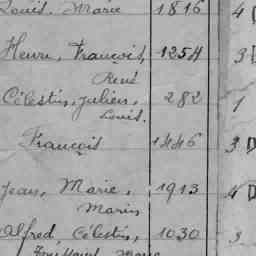 Louis, Marie 1816 4
Henri, François, 1254 3
René
Célestin, Julien, 282 1
Louis.
François 1446 3
Jean, Marie, 1913 4
Marin
Alfred, Célestin, 1030 3
Toussaint Marie